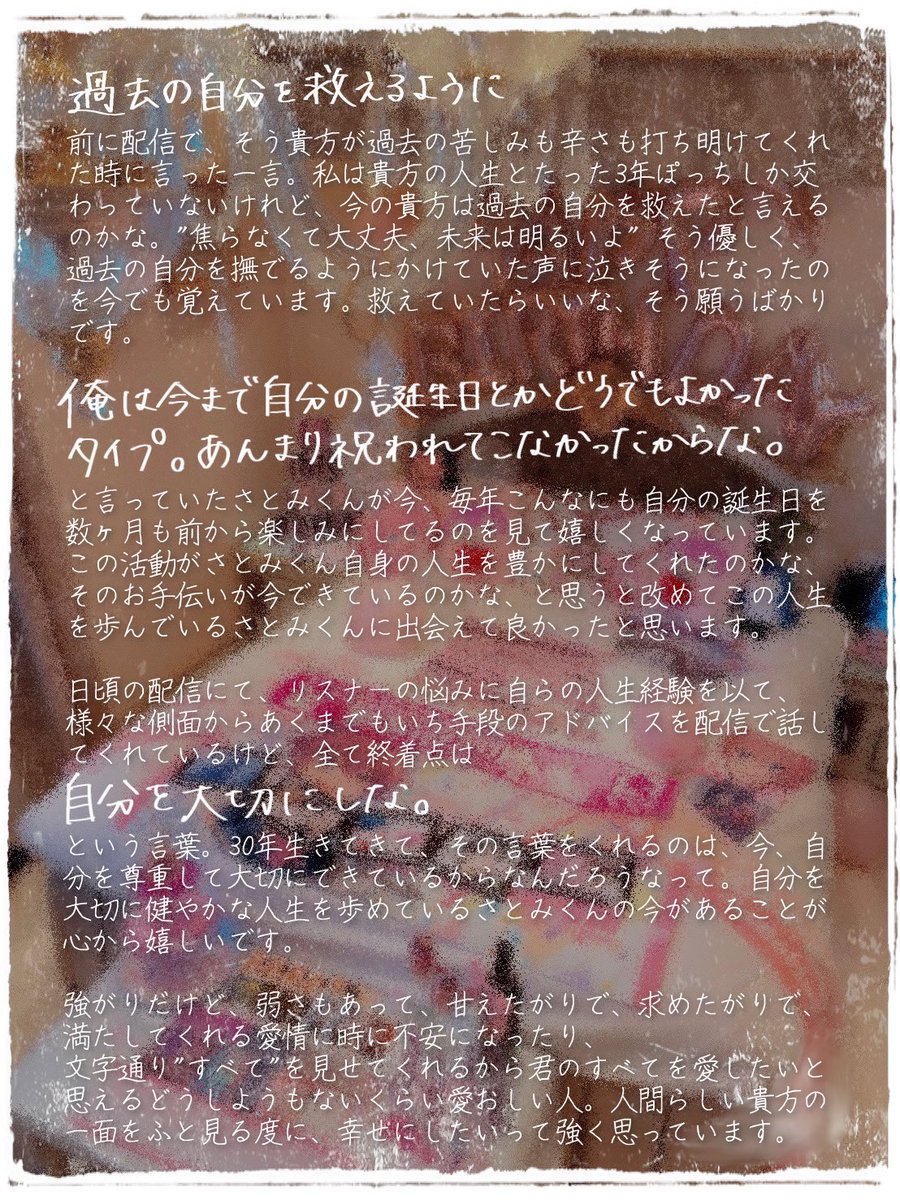 過去の自分を救えるように
前に配信で、そう貴方が過去の苦しみも辛さも打ち明けてくれ
た時に言った一言。私は貴方の人生とたった3年ぽっちしか交
わっていないけれど、今の貴方は過去の自分を救えたと言える
のかな。"焦らなくて大丈夫、未来は明るいよ" そう優しく、
過去の自分を撫でるようにかけていた声に泣きそうになったの
を今でも覚えています。救えていたらいいな、そう願うばかり
です。
俺は今まで自分の誕生日とかどうでもよかった
タイプ。あんまり祝われてこなかったからな。
と言っていたさとみくんが今、毎年こんなにも自分の誕生日を
数ヶ月も前から楽しみにしてるのを見て嬉しくなっています。
この活動がさとみくん自身の人生を豊かにしてくれたのかな、
そのお手伝いが今できているのかな、と思うと改めてこの人生
を歩んでいるさとみくんに出会えて良かったと思います。
日頃の配信にて、リスナーの悩みに自らの人生経験を以て、
様々な側面からあくまでもいち手段のアドバイスを配信で話し
てくれているけど、全て終着点は
自分を大切にしな。
という言葉。30年生きてきて、その言葉をくれるのは、今、自
分を尊重して大切にできているからなんだろうなって。自分を
大切に健やかな人生を歩めているさとみくんの今があることが
心から嬉しいです。
強がりだけど、弱さもあって、甘えたがりで、求めたがりで、
満たしてくれる愛情に時に不安になったり、
文字通り"すべて"を見せてくれるから君のすべてを愛したいと
思えるどうしようもないくらい愛おしい人。人間らしい貴方の
一面をふと見る度に、幸せにしたいって強く思っています。